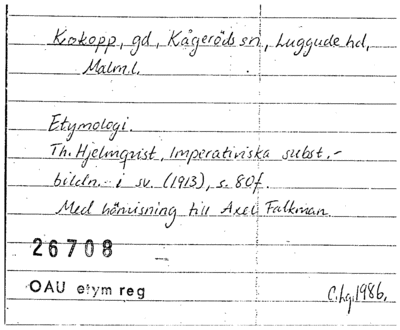 Kokopp, gd, Kågeröds sn, Luggude hd,
Malm.l.
Etymologi.
Th. Hjelmqvist, Imperativiska subst.-
bildn. i sv. (1913), s. 80f.
Med hänvisning till Axel Falkman.
26708
OAU etym reg
C.hg. 1986.